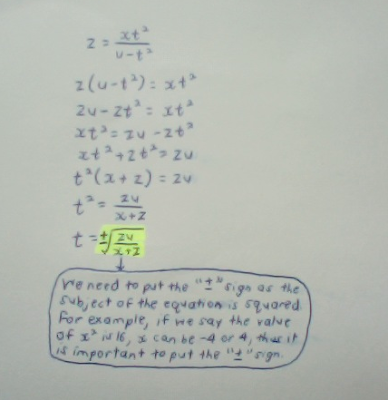 z = xt²/u-t²
z(u-t²) = xt²
zu - zt² = xt²
xt² = zu - zt²
xt² + zt² = zu
t²(x+z) = zu
t² = zu/x+z
t = ±√zu/x+z
We need to put the "±" sign as the
subject of the equation is squared.
For example, if we say the value
of x² is 16, x can be -4 or 4, thus it
is important to put the "±" sign.